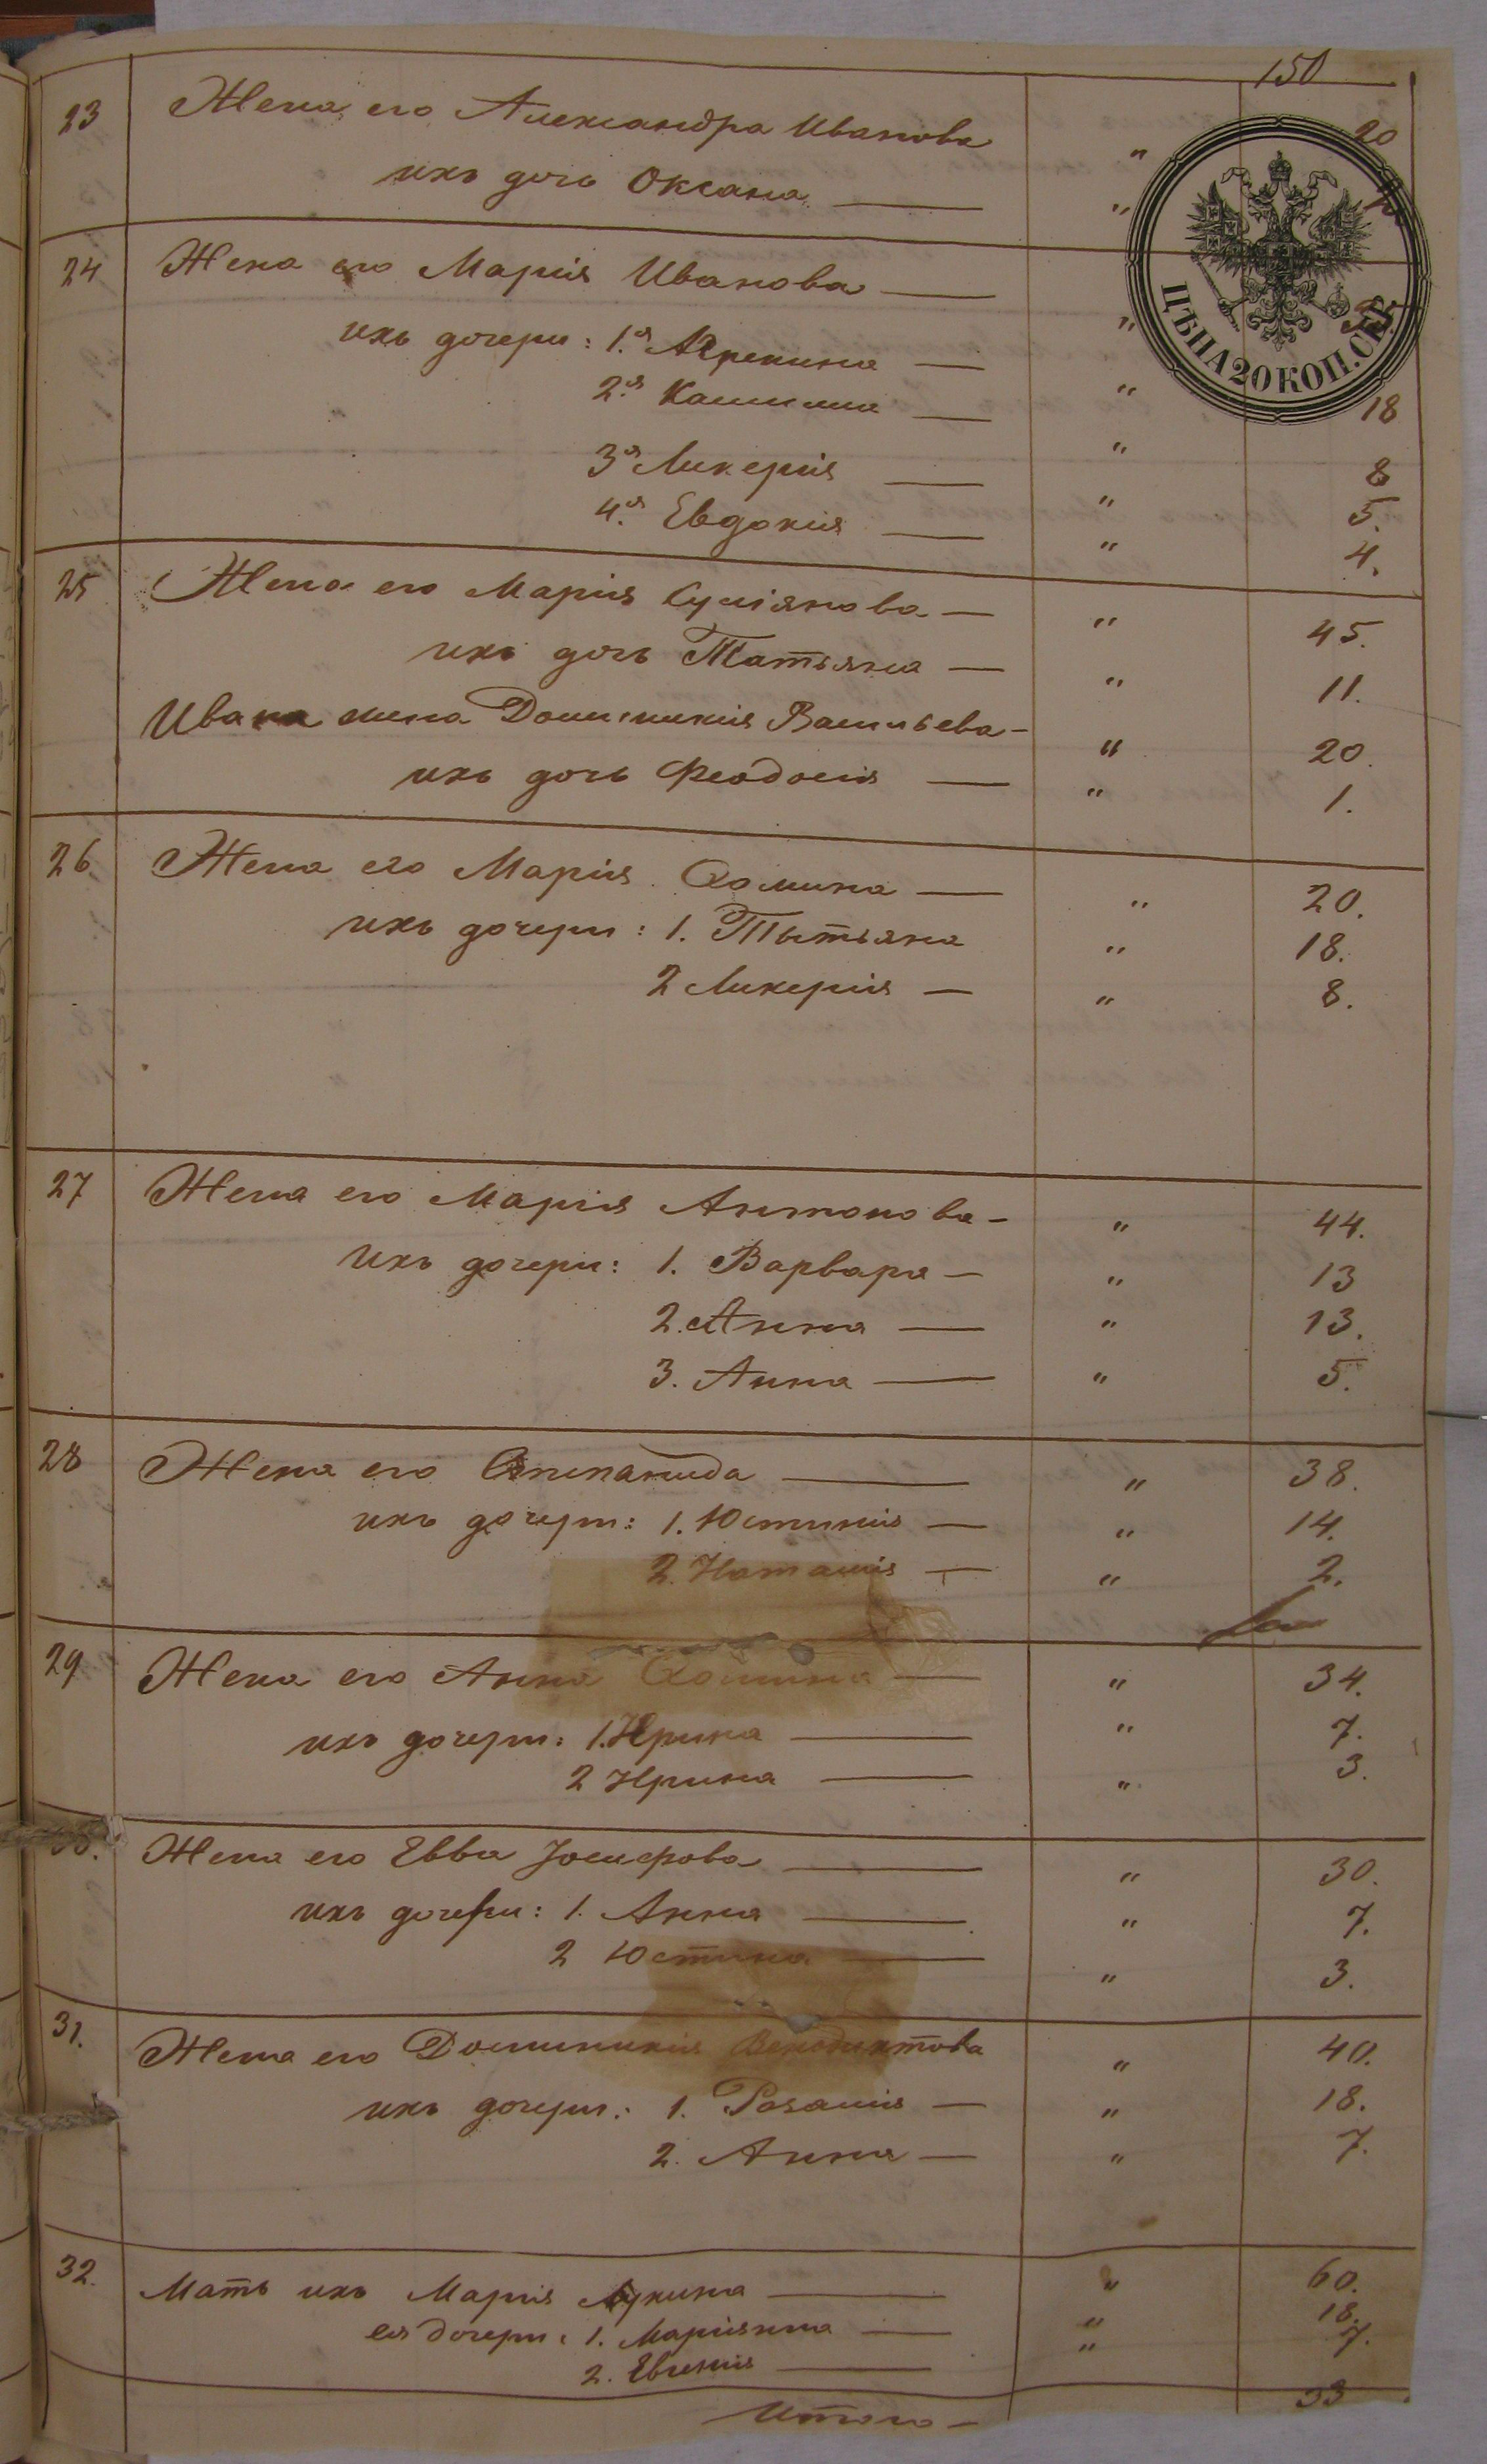 150
23 Жена его Александра Иванова " 20
ихъ дочь Оксана "
24 Жена его Марія Иванова "
ихъ дочери: 1.я Агрепина " 18
2.я "
3я Ликерія " 8
4.я Евдокия " 5.
4.
ЦѢНА 20 КОП. СЕР.
25 Жена его Марія " 45.
ихъ дочь Татьяна " 11.
Ивана жена Доминикія Васильева - " 20.
ихъ дочь Феодосія " 1.
26 Жена его Марія Фомина " 20.
ихъ дочери: 1. Тытьяна " 18.
2 Ликерія " 8.
27 Жена его Марія Антонова - " 44.
ихъ дочери: 1. Варвара - " 13
2. Анна " 13.
3. Анна " 5.
28 Жена его " 38.
ихъ дочери: 1. Юстинія " 14.
2. Наталія " 2.
29 Жена его Анна Фомина " 34.
ихъ дочери: 1. Ирина " 7.
2 Ирина " 3.
Жена его Евва Іосифова " 30.
ихъ дочери: 1. Анна " 7.
2 Юстина " 3.
31. Жена его Доминикія Венедиктова " 40.
ихъ дочери: 1. Розалія " 18.
2. Анна " 7.
32. Мать ихъ Марія Лукина " 60.
ея дочери: 1. Маріянна " 18.
2. Евгенія " 7.
Итого - 33